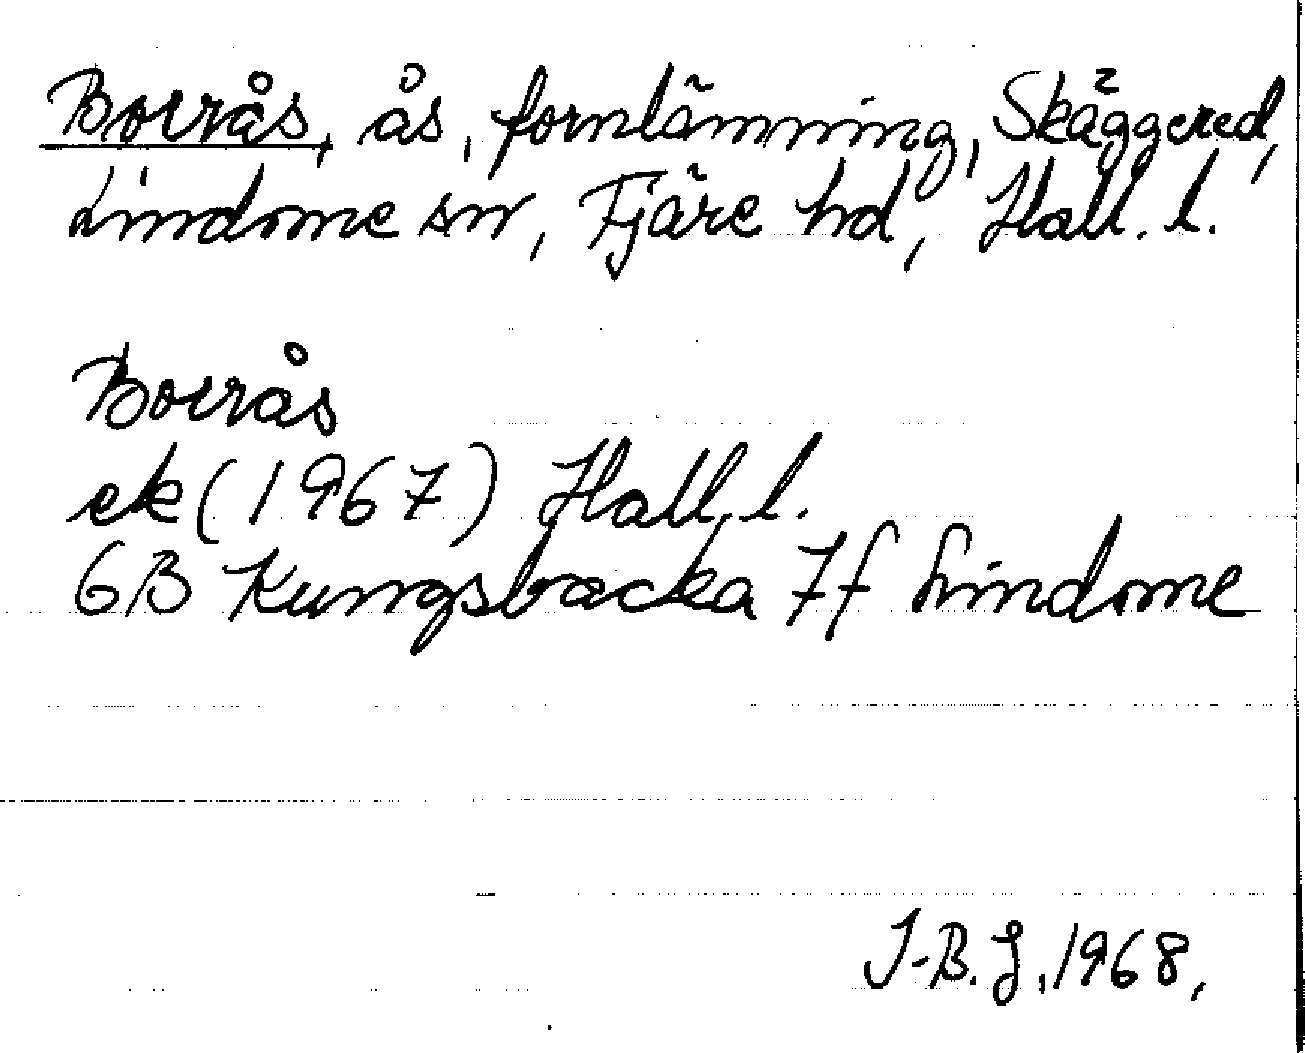 Borrås, ås, fornlämning, Skäggered,
Lindome sn, Fjäre hd, Hall. l.
Borrås
ek (1967) Hall. l.
6B Kungsbacka 7f Lindome
J-B. J, 1968,